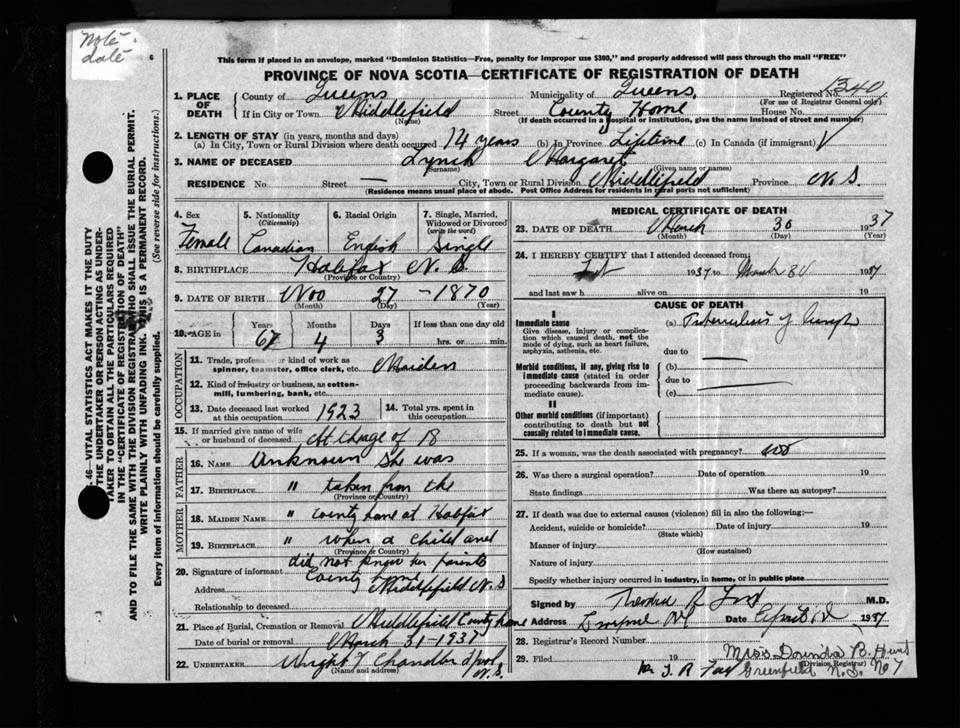 Note
date
6
This form if placed in an envelope, marked "Dominion Statistics—Free, penalty for improper use $300," and properly addressed will pass through the mail "FREE"
PROVINCE OF NOVA SCOTIA—CERTIFICATE OF REGISTRATION OF DEATH
1. PLACE OF DEATH
County of Queens Municipality of Queens. Registered No. 1340
(For use of Registrar General only)
If in City or Town Middlefield Street County Home House No.
(Name) (If death occurred in a hospital or institution, give the name instead of street and number)
2. LENGTH OF STAY (in years, months and days)
(a) In City, Town or Rural Division where death occurred 14 years (b) In Province Lifetime (c) In Canada (if immigrant)
3. NAME OF DECEASED Lynch Margaret
(Surname) (Given name or names)
RESIDENCE No Street — City, Town or Rural Division Middlefield Province N.S.
(Residence means usual place of abode. Post Office Address for Residents in rural parts not sufficient)
4. Sex
Female
5. Nationality
(Citizenship)
Canadian
6. Racial Origin
English
7. Single, Married, Widowed or Divorced
(write the word)
Single
8. BIRTHPLACE Halifax N.S.
(Province or Country)
9. DATE OF BIRTH Nov 27 - 1870
(Month) (Day) (Year)
10. AGE in
Years Months Days If less than one day old
67 4 3 hrs. or min.
OCCUPATION
11. Trade, profession or kind of work as spinner, teamster, office clerk, etc. Maiden
12. Kind of industry or business, as cotton-mill, lumbering, bank, etc.
13. Date deceased last worked at this occupation 1923
14. Total yrs. spent in this occupation
15. If married give name of wife or husband of deceased At Charge of 18
FATHER
16. NAME Unknown She was
17. BIRTHPLACE " taken from the
(Province or Country)
MOTHER
18. MAIDEN NAME " County home at Halifax
19. BIRTHPLACE " when a child and
(Province or Country)
did not know her parents
20. Signature of informant County home
Address Middlefield N.S
Relationship to deceased
21. Place of Burial, Cremation or Removal Middlefield County home
Date of burial or removal March 31-1937
22. UNDERTAKER Wright T Chandler L'pool N.S.
(Name and address)
MEDICAL CERTIFICATE OF DEATH
23. DATE OF DEATH March 30 1937
(Month) (Day) (Year)
24. I HEREBY CERTIFY that I attended deceased from:
1937 to March 30 1937
and last saw h alive on 19
CAUSE OF DEATH
I
Immediate cause
Give disease, injury or complication which caused death, not the mode of dying, such as heart failure, asphyxia, asthenia, etc.
(a) Tuberculosis of lungs
due to
Morbid conditions, if any, giving rise to immediate cause (stated in order proceeding backwards from immediate cause).
(b)
due to
(c)
II
Other morbid conditions (if important) contributing to death but not causally related to immediate cause.
25. If a woman, was the death associated with pregnancy? no
26. Was there a surgical operation? Date of operation 19
State findings Was there an autopsy?
27. If death was due to external causes (violence) fill in also the following:—
Accident, suicide or homicide? Date of injury 19
(State which)
Manner of injury
(How sustained)
Nature of injury
Specify whether injury occurred in industry, in home, or in public place
Signed by M.D.
Address Date April 1937
28. Registrar's Record Number
29. Filed 19 Miss Dorinda B. Hunt
(Division Registrar)
Greenfield N.S. No 7
46—VITAL STATISTICS ACT MAKES IT THE DUTY
THE UNDERTAKER OR PERSON ACTING AS UNDER-
TAKER TO OBTAIN ALL THE PARTICULARS REQUIRED
IN THE "CERTIFICATE OF REGISTRATION OF DEATH"
AND TO FILE THE SAME WITH THE DIVISION REGISTRAR WHO SHALL ISSUE THE BURIAL PERMIT.
WRITE PLAINLY WITH UNFADING INK. THIS IS A PERMANENT RECORD.
Every item of information should be carefully supplied. (See reverse side for instructions.)